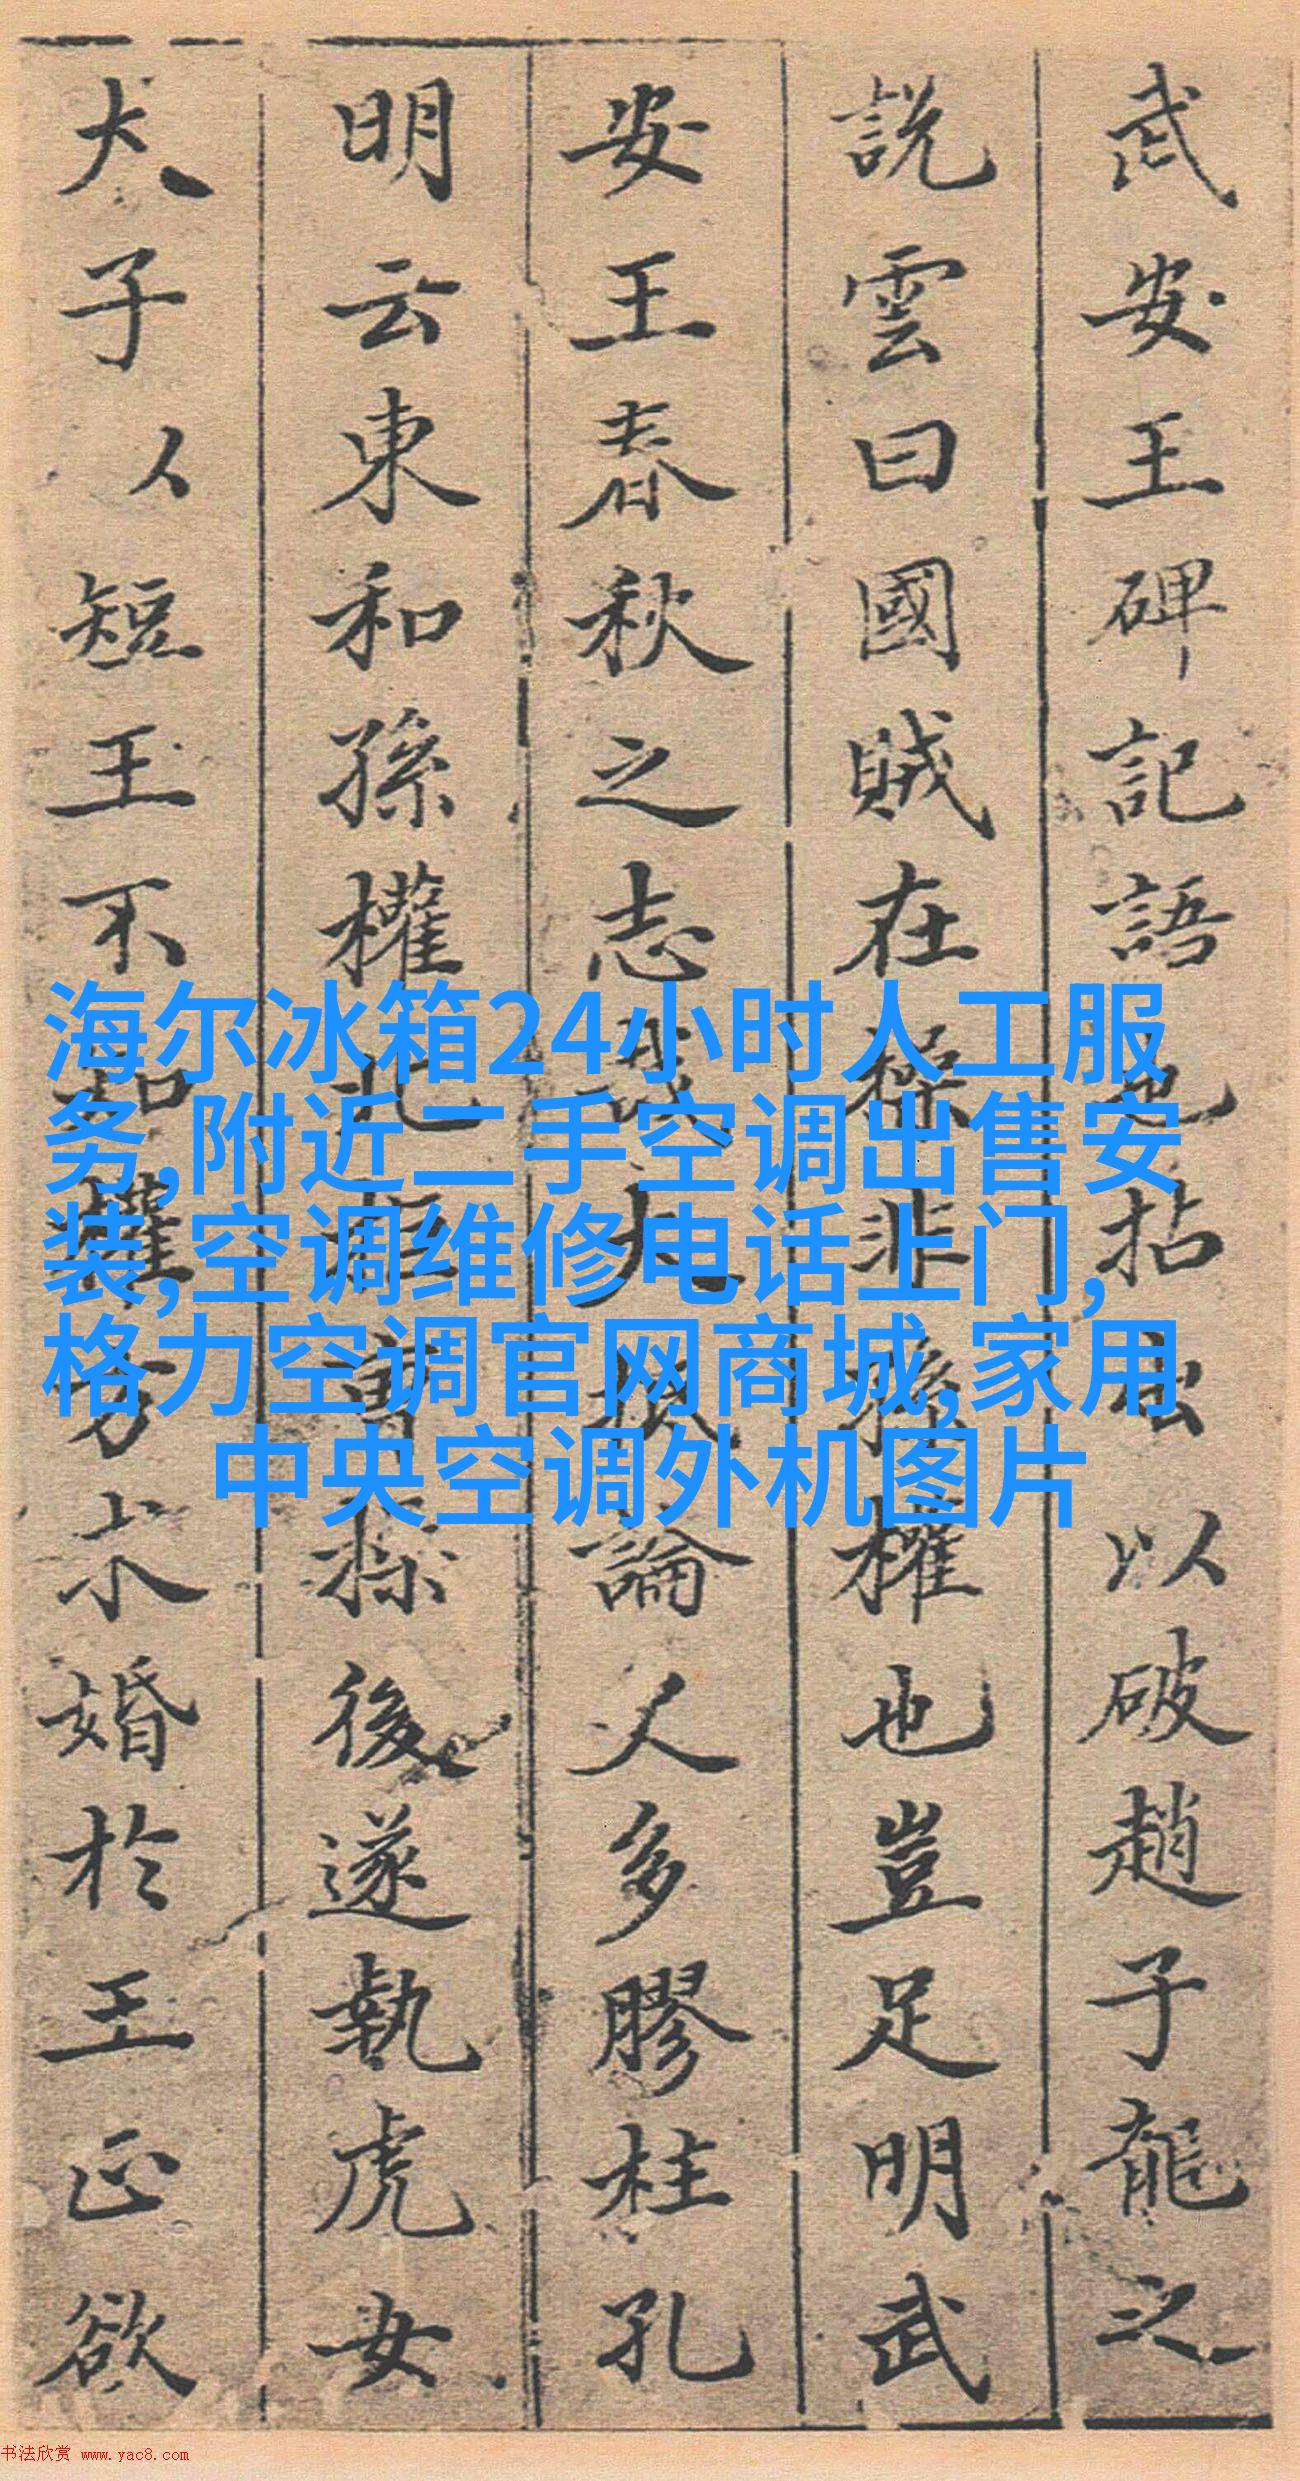 武安王碑記語拈出以破趙子龍之
說雲曰國賊在操非孫權也豈足明武
安王春秋之志哉大抵論人多膠柱孔
明云東和孫權北拒曹操後遂執虎女
犬子以短王不知權方求婚於王正欲
海尔冰箱24小时人工服
务,附近二手空调出售安
装,空调维修电话上门,
格力空调官网商城,家用
中央空调外机图片
书法欣赏 www.yac8.com